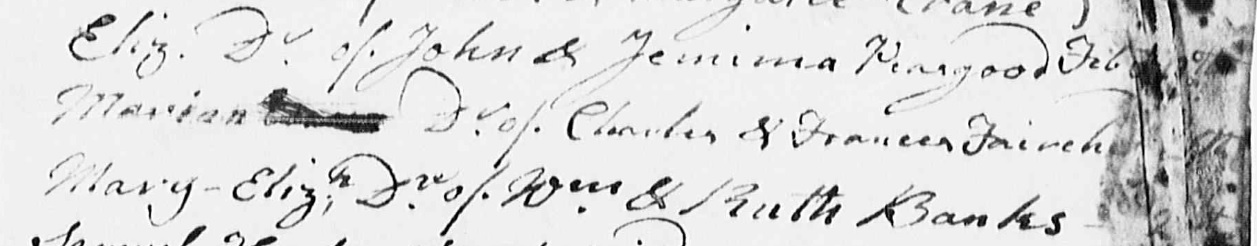 Crane
Eliz. Dr. of John & Jemima Peasgood Feb
Marian Dr. of Charles & Frances
Mary-Elizh. Dr. of Wm. & Ruth Banks